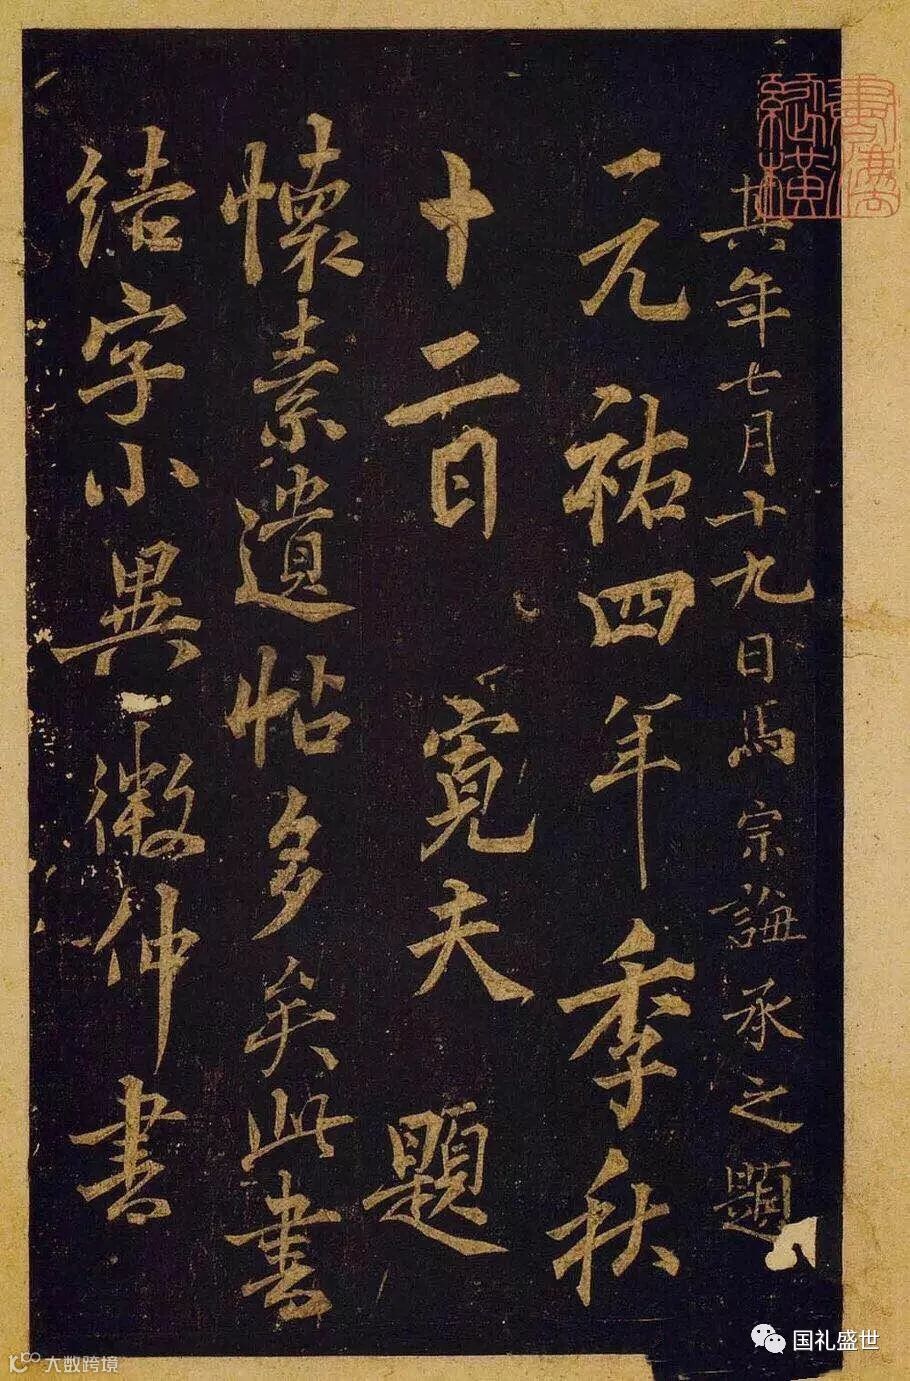 其年七月十九日馬宗誨承之題
元祐四年季秋
十二日寬夫題
懷素遺帖多矣此書
結字小異微仲書
國礼盛世
大数跨境